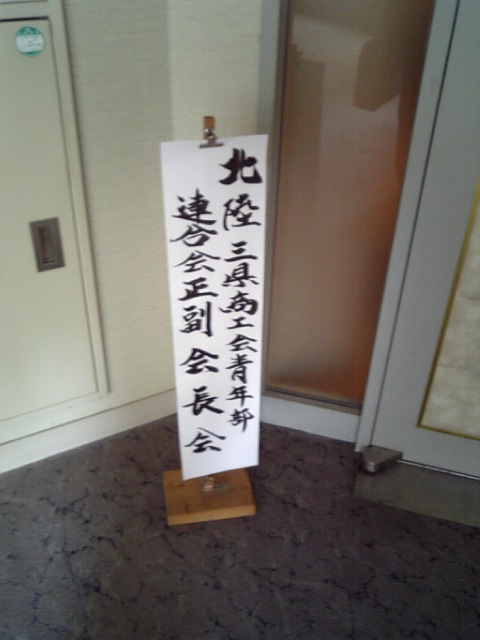 北陸三県商工会青年部
連合会正副会長会